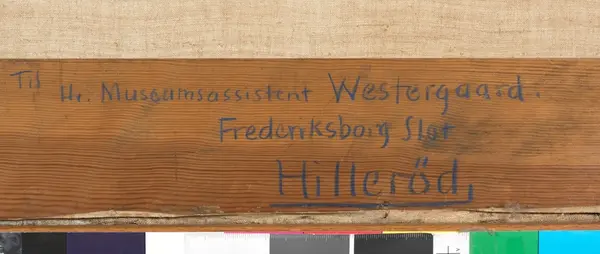 Til Hr. Museumsassistent Westergaard.
Frederiksborg Slot
Hilleröd,